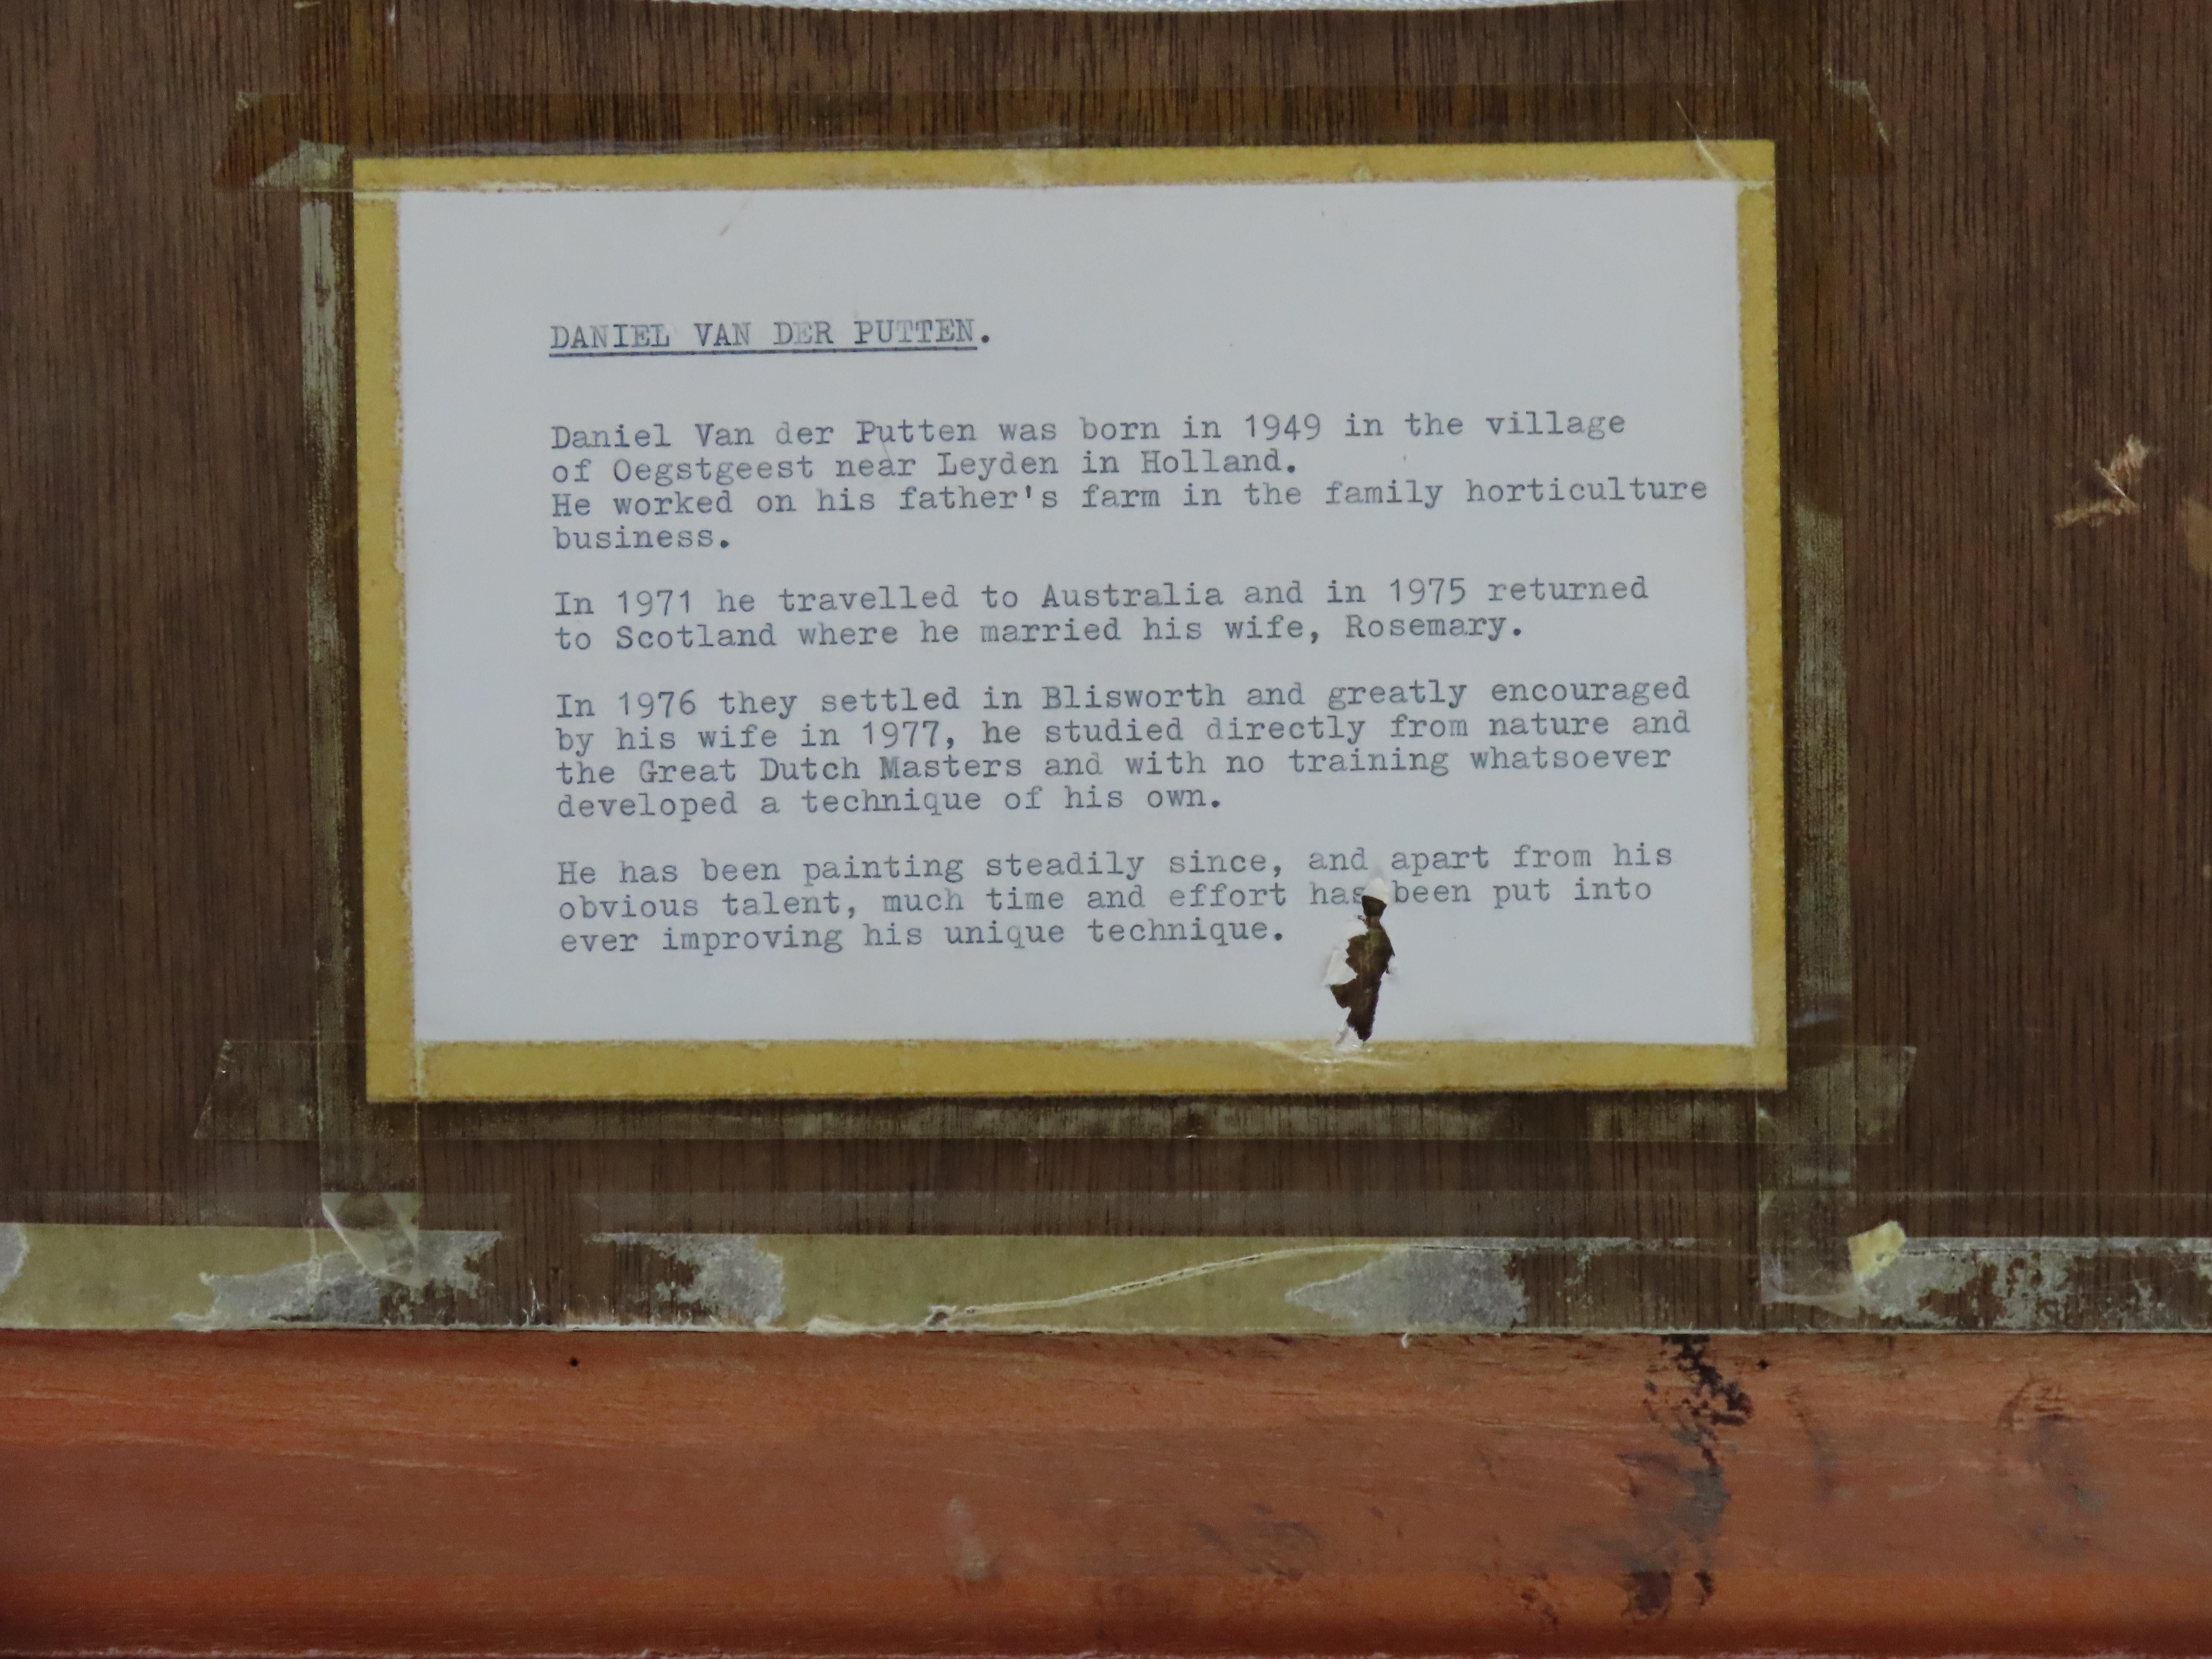 DANIEL VAN DER PUTTEN.
Daniel Van der Putten was born in 1949 in the village
of Oegstgeest near Leyden in Holland.
He worked on his father's farm in the family horticulture
business.
In 1971 he travelled to Australia and in 1975 returned
to Scotland where he married his wife, Rosemary.
In 1976 they settled in Blisworth and greatly encouraged
by his wife in 1977, he studied directly from nature and
the Great Dutch Masters and with no training whatsoever
developed a technique of his own.
He has been painting steadily since, and apart from his
obvious talent, much time and effort has been put into
ever improving his unique technique.